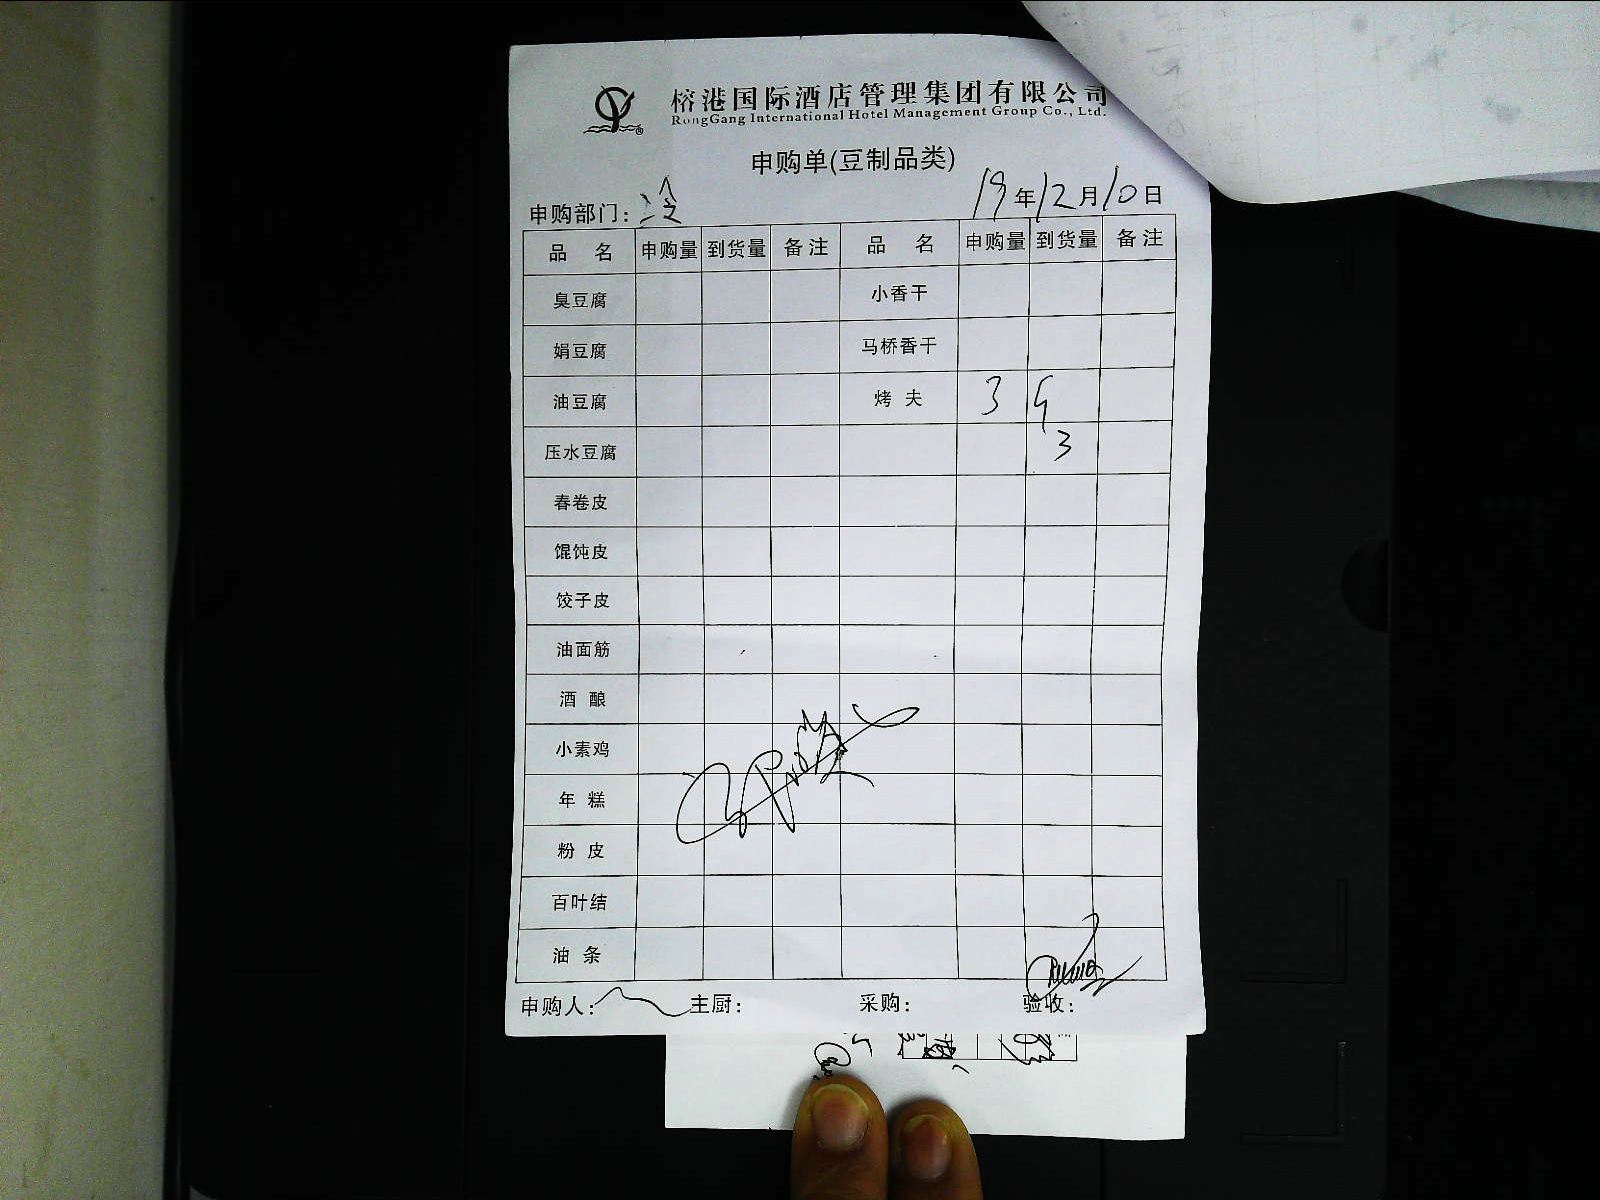 榕港国际酒店管理集团有限公司
RongGang International Hotel Management Group Co., Ltd.
申购单(豆制品类)
申购部门: 冷 19年12月10日
品 名 申购量 到货量 备注 品 名 申购量 到货量 备注
臭豆腐 小香干
娟豆腐 马桥香干
油豆腐 烤 夫 3
压水豆腐 3
春卷皮
馄饨皮
饺子皮
油面筋
酒 酿
小素鸡
年 糕
粉 皮
百叶结
油 条
申购人: 主厨: 采购: 验收: